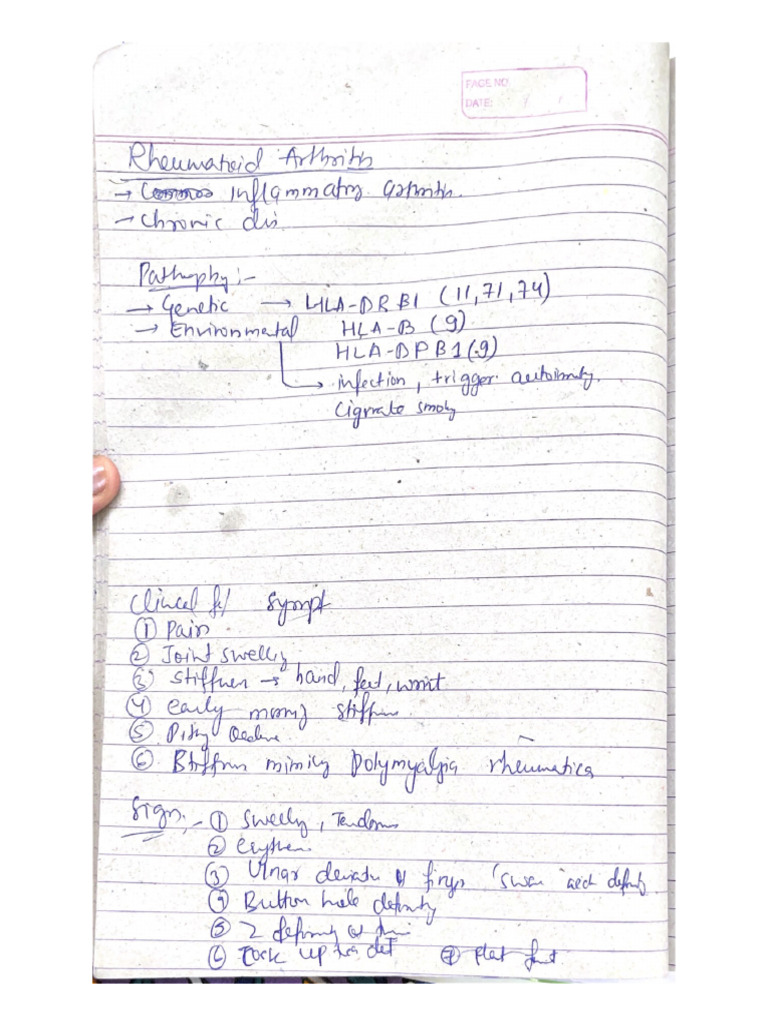 PAGE NO.
DATE: / /
Rheumatoid Arthritis
→ Common inflammatory arthritis.
→ chronic dis
Pathophy :-
→ Genetic → HLA-DRB1 (11,71,74)
→ Environmental HLA-B (9)
HLA-DPB1(.9)
→ infection, trigger autoimty.
Cigrate smoky
Clinical f/ Sympt
① Pain
② Joint swellig
③ Stiffnes → hand, feet, wrist
④ early mornig stiffnes
⑤
⑥ Stiffnes mimikg Polymyalgia rheumatica
Sign :- ① swelly, Tendrns
② Erythem
③ Ulnar deviatn of fingrs (swan neck defomty
④ Button hole defomity
⑤ Z defomity of
⑥ Cock up toe def ⑦ flat foot